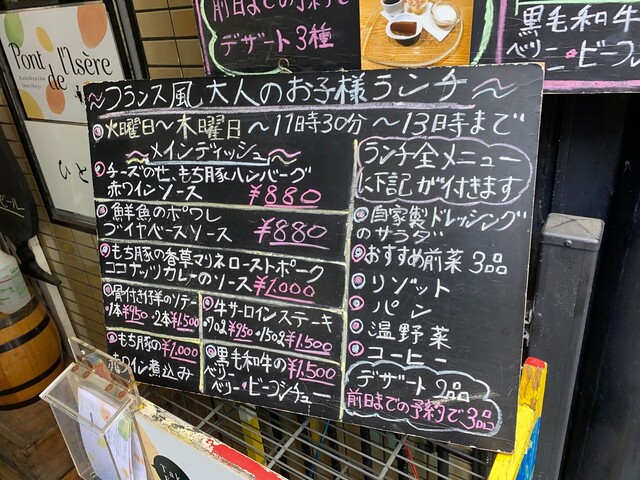 Pont
de l'Isère
ひと
前日までの予約で
デザート3種
黒毛和牛
ベリー・ビーフシ
～フランス風大人のお子様ランチ～
火曜日～木曜日～11時30分～13時まで
～メインディッシュ～
チーズのせ、もち豚ハンバーグ
赤ワインソース ¥880
鮮魚のポワレ
ブイヤベースソース ¥880
もち豚の香草マリネローストポーク
ココナッツカレーのソース ¥1.000
骨付き仔羊のソテー
1本¥950・2本¥1.500
牛サーロインステーキ
90g¥950・150g¥1.500
もち豚の ¥1.000
赤ワイン煮込み
黒毛和牛の ¥1.500
ベリーベリー・ビーフシチュー
ランチ全メニュー
に下記が付きます
自家製ドレッシング
のサラダ
おすすめ前菜3品
リゾット
パン
温野菜
コーヒー
デザート2品
前日までの予約で3品